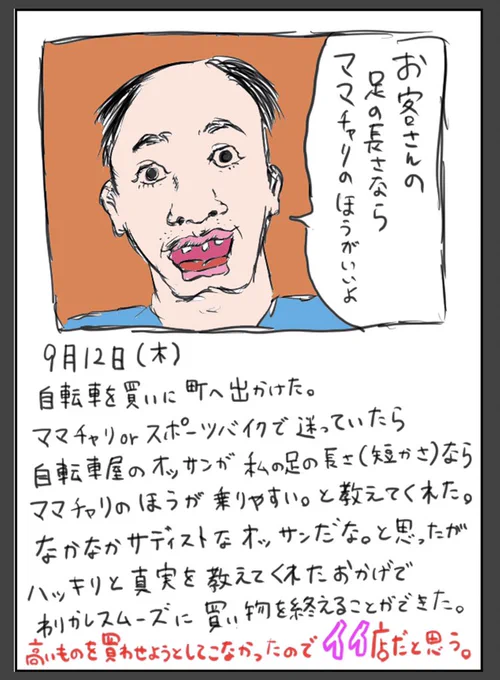 お客さんの
足の長さなら
ママチャリのほうがいいよ
9月12日(木)
自転車を買いに町へ出かけた。
ママチャリorスポーツバイクで迷っていたら
自転車屋のオッサンが私の足の長さ(短かさ)なら
ママチャリのほうが乗りやすい。と教えてくれた。
なかなかサディストなオッサンだな。と思ったが
ハッキリと真実を教えてくれたおかげで
わりかしスムーズに買い物を終えることができた。
高いものを買わせようとしてこなかったのでイイ店だと思う。